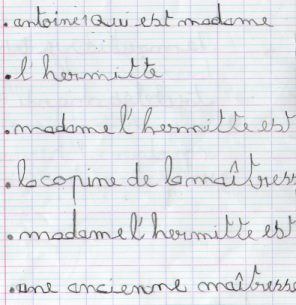 . antoine : qui est madame
. l'hermitte
. madame l'hermitte est
. la copine de la maîtress
. madame l'hermitte est
. une ancienne maîtresse